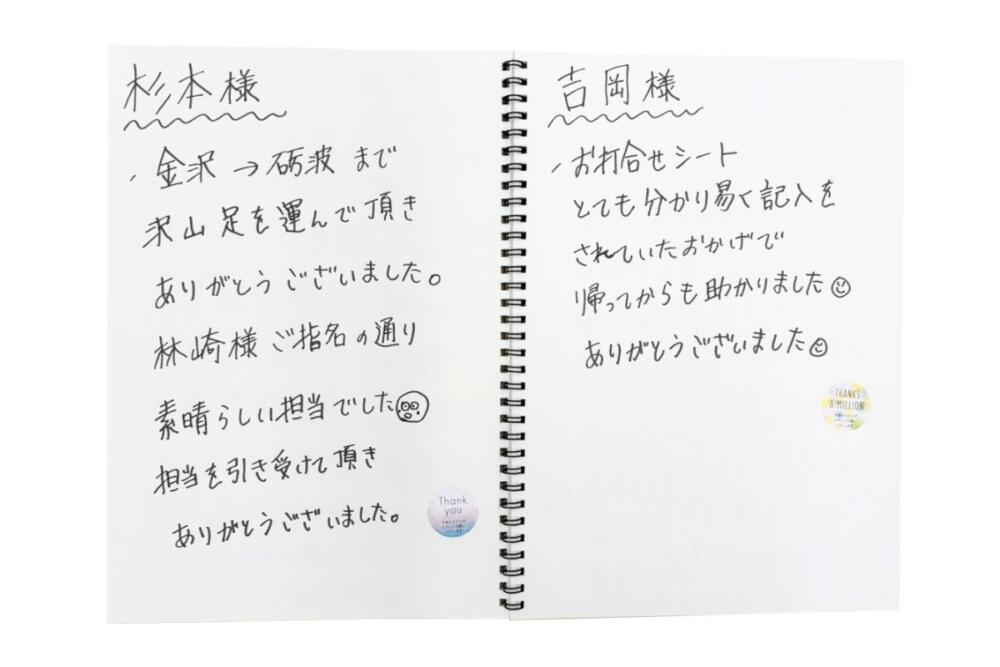 杉本様
、金沢→砺波 まで
沢山 足を運んで頂き
ありがとうございました。
林崎様ご指名の通り
素晴らしい担当でした
担当を引き受けて頂き
ありがとうございました。
Thank
you
吉岡様
、お打合せシート
とても分かり易く記入を
されていたおかげで
帰ってからも助かりました
ありがとうございました
THANKS
A MILLION